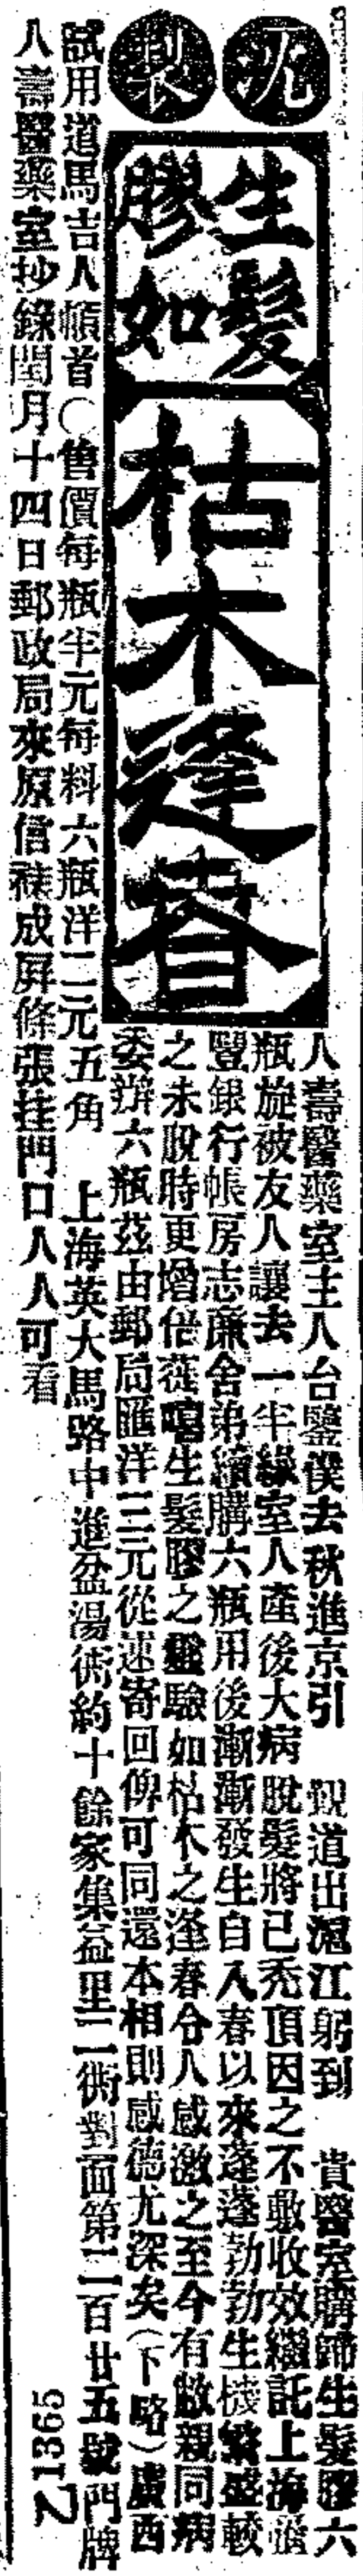 九製
生髮膠如
枯木逢春
人壽醫藥室主人台鑒僕去秋進京引 覲道出滬江躬到 貴醫室購歸生髮膠六
瓶旋被友人讓去一半緣室人產後大病脫髮將已禿頂因之不敷收效繼託上海
豐銀行帳房志廉舍弟續購六瓶用後漸漸發生自入春以來蓬蓬勃勃生機繁盛較
之未脫時更增倍蓰噫生髮膠之靈驗如枯木之逢春令人感激之至今有敝親同病
委辦六瓶茲由郵局匯洋三元從速寄回俾可同還本相則感德尤深矣(下略)廣西
試用道馬吉人頓首〇售價每瓶半元每料六瓶洋二元五角 上海英大馬路中進盆湯衖約十餘家集益里二衖對面第二百廿五號門牌
人壽醫藥室抄錄閏月十四日郵政局來原信裱成屏條張挂門口人人可看
Z1365